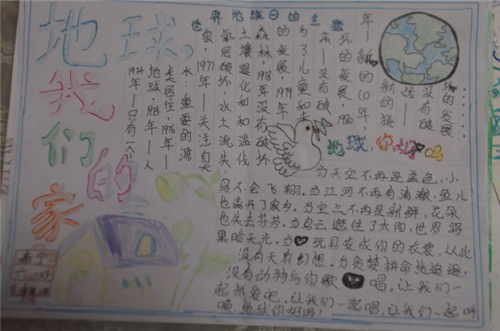 地球,
我们的家
世界地球日的主题
1974年——只有一个
地球,1975年——人
类居住,1976年——
水:重要的源
泉,1977年——关注臭
氧层破坏,水土流失,
土壤退化和和滥伐
森林,1978年没有破坏
的发展,1979年
为了儿童和未
来——没有破
坏的发展,1980
年——新的10年,
新的挑
战——
没有破
坏的
发展……
地球,你好吗
当天空不再是蓝色,小
鸟不会飞翔。当江河不再有清澈,鱼儿
也离开了家乡。当空气不再是新鲜,花朵
也失去芬芳。当乌云遮住了太阳,世界将
黑暗无光。当玩具变成你的衣裳,从此
没有天真幻想。当贪婪拼命地追逐,
没有动物与你歌唱,让我们一
起热爱吧,让我们一起唱,让我们一起呼
喊,地球你好吗!